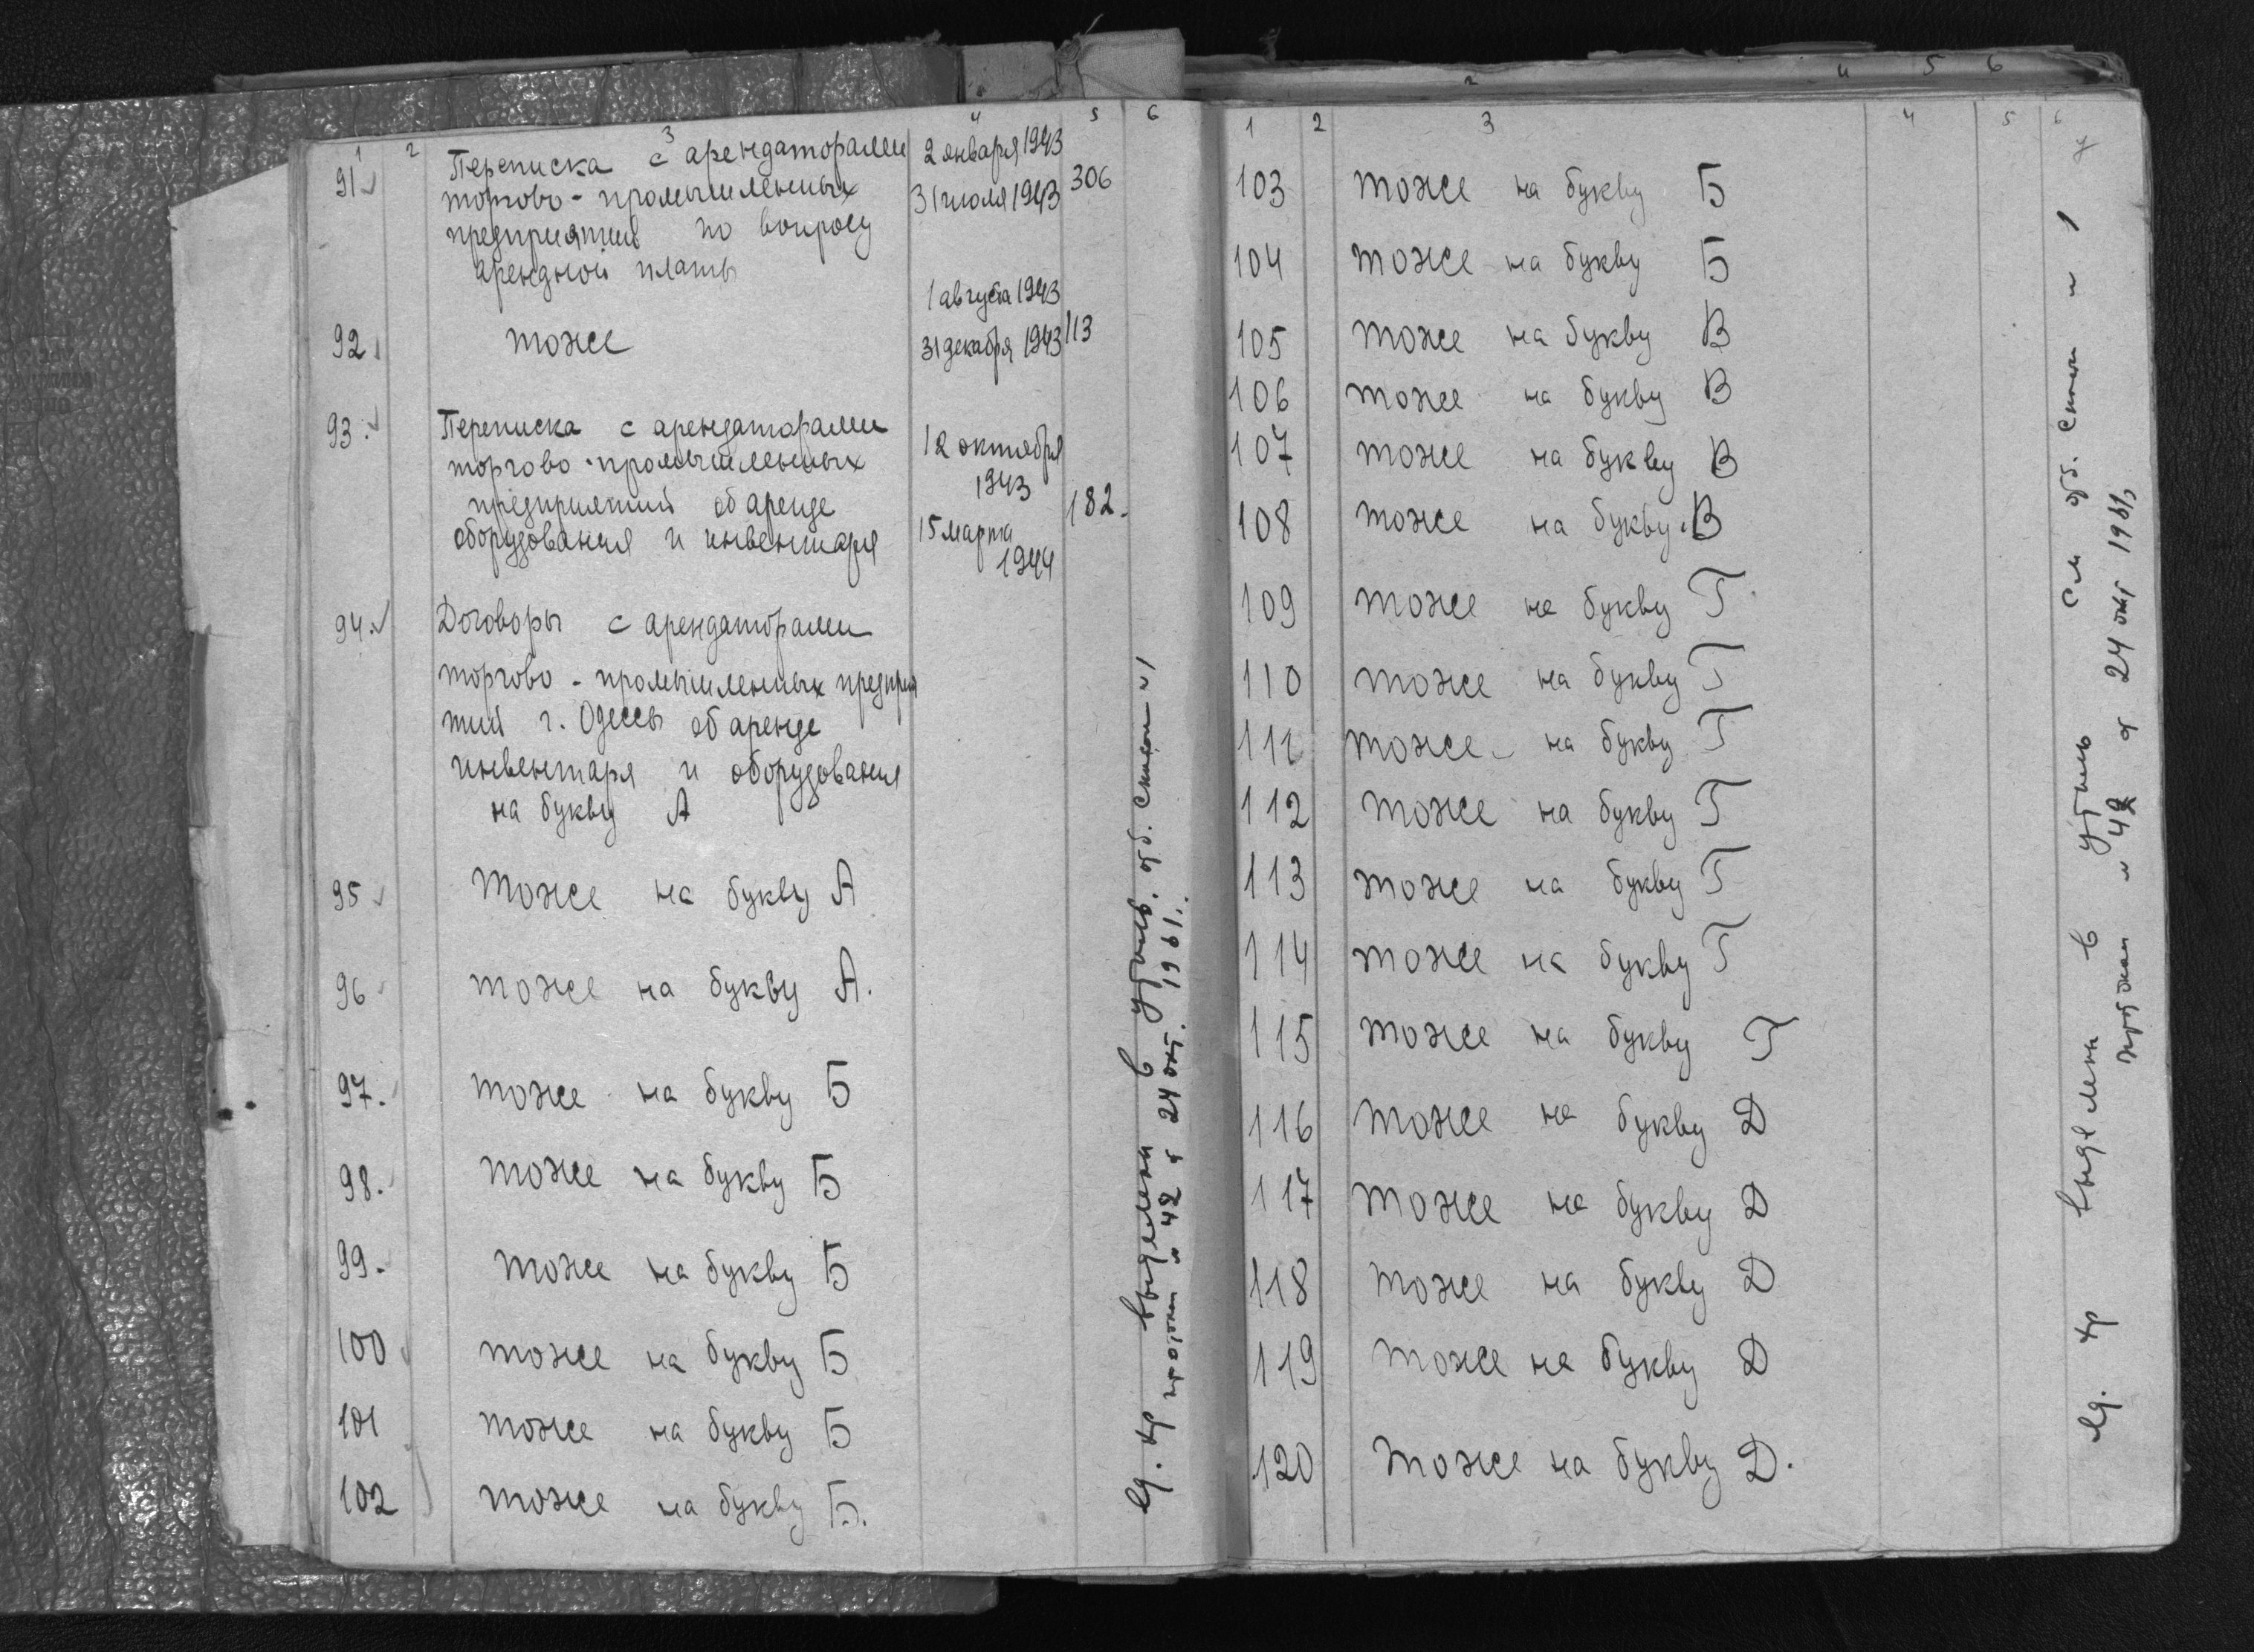 1 2 3 4 5 6
91 Переписка с арендаторами 2 января 1943
торгово-промышленных 31 июля 1943 306
предприятий по вопросу
арендной платы
1 августа 1943
92. тоже 31 декабря 1943 113
93. Переписка с арендаторами 12 октября
торгово-промышленных 1943
предприятий об аренде 182.
оборудования и инвентаря 15 марта
1944
94. Договоры с арендаторами
торгово-промышленных предприя
тий г. Одессы об аренде
инвентаря и оборудования
на букву А
95 тоже на букву А
96 тоже на букву А.
97. тоже на букву Б
98. тоже на букву Б
99. тоже на букву Б
100 тоже на букву Б
101 тоже на букву Б
102 тоже на букву Б.
ед. хр выделены в утиль. отб. список №1
протокол №42 от 24 окт. 1961г.
1 2 3 4 5 6
103 тоже на букву Б
104 тоже на букву Б
105 тоже на букву В
106 тоже на букву В
107 тоже на букву В
108 тоже на букву В
109 тоже на букву Г
110 тоже на букву Г
111 тоже на букву Г
112 тоже на букву Г
113 тоже на букву Г
114 тоже на букву Г
115 тоже на букву Г
116 тоже на букву Д
117 тоже на букву Д
118 тоже на букву Д
119 тоже на букву Д
120 тоже на букву Д.
ед. хр выделены в утиль см отб. список №1
протокол №42 от 24 окт 1961г
2 4 5 6